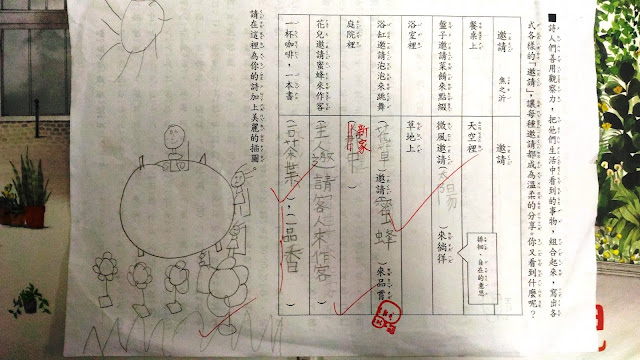 ■詩人們善用觀察力，把他們生活中看到的事物，組合起來，寫出各
式各樣的「邀請」，讓每種邀請都成為溫柔的分享。你又看到什麼呢？
邀請 焦之沂
餐桌上
盤子邀請菜餚來點綴
浴室裡
浴缸邀請泡泡來跳舞
庭院裡
花兒邀請蜜蜂來作客
一杯咖啡，一本書
邀請
天空裡
微風邀請（太陽）來徜徉
徘徊、自在的意思
草地上
（花草）邀請（蜜蜂）來品嘗
新家
（主人邀請客人來作客）
（品茶葉），（品香）
請在這裡為你的詩加上美麗的插圖。